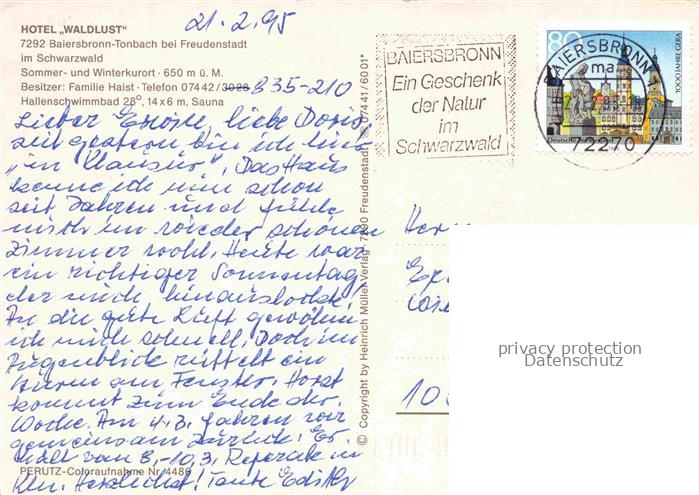 21.2.95
HOTEL „WALDLUST“
7292 Baiersbronn-Tonbach bei Freudenstadt
im Schwarzwald
Sommer- und Winterkurort · 650 m ü. M.
Besitzer: Familie Haist · Telefon 07442/3028 835-210
Hallenschwimmbad 28°, 14 x 6 m, Sauna
Lieber liebe Doris
seit gestern bin ich hier
„in Klausur“. Das Haus
kenne ich nun schon
seit Jahren und fühle
mich im wieder schönen
Zimmer wohl. Heute war
ein richtiger Sonnentag,
der mich hinauslockte!
An die gute Luft gewöhne
ich mich schnell. Doch im
Augenblick rüttelt ein
Sturm am Fenster. Horst
kommt zum Ende der
Woche. Am 4.3. fahren wir
gemeinsam zurück. Er
hält vom 8.-10.3. Referate in
Köln. Herzlichst! Tante Edith
PERUTZ-Coloraufnahme Nr. 4486
© Copyright by Heinrich Müller-Verlag · 7290 Freudenstadt 07441/6001*
BAIERSBRONN
Ein Geschenk
der Natur
im
Schwarzwald
80
1000 JAHRE GERA
BAIERSBRONN
ma
72270
Herrn
10
privacy protection
Datenschutz